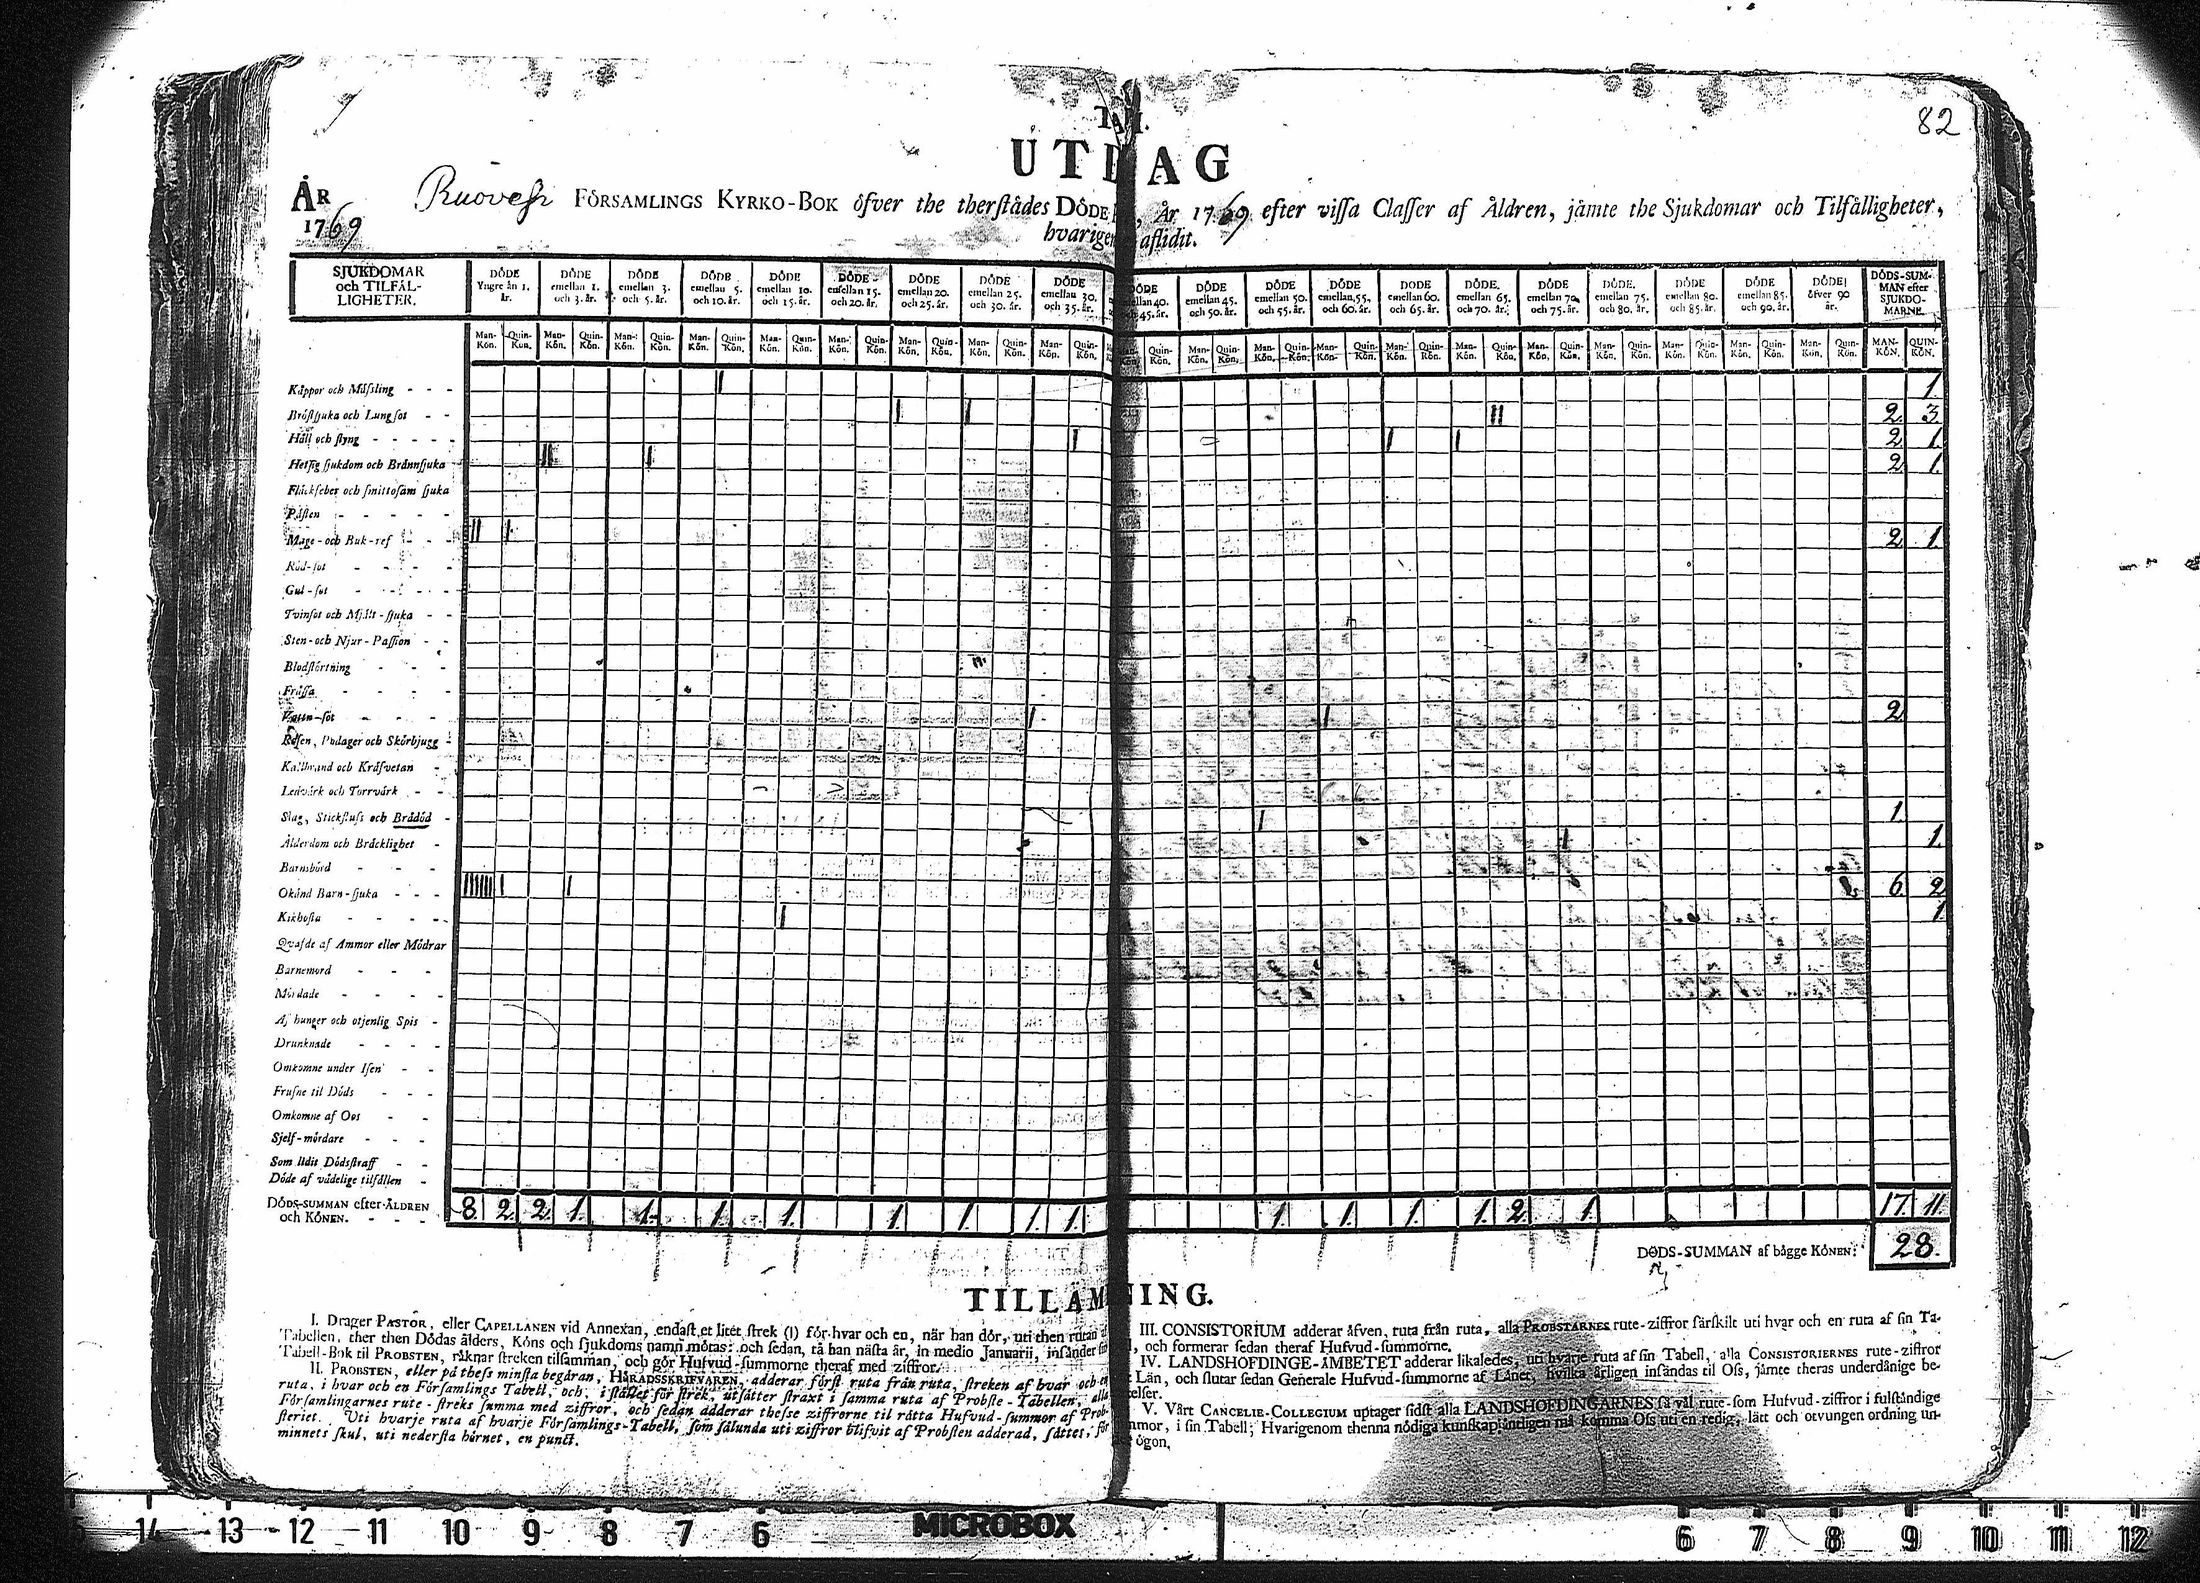 82
TA I.
UT AG
ÅR 1769
Ruovesi FÖRSAMLINGS KYRKO-BOK öfver the therstådes DÖDE , År 1769 efter vissa Classer af Åldren, jämte the Sjukdomar och Tilfålligheter,
hvarigen aflidit.
SJUKDOMAR och TILFÅL-LIGHETER.
DÖDE Yngre än 1. år.
DÖDE emellan 1. och 3. år.
DÖDE emellan 3. och 5. år.
DÖDE emellan 5. och 10. år.
DÖDE emellan 10. och 15. år.
DÖDE emellan 15. och 20. år.
DÖDE emellan 20. och 25. år.
DÖDE emellan 25. och 30. år.
DÖDE emellan 30. och 35. år.
DÖDE ellan 40. 45. år.
DÖDE emellan 45. och 50. år.
DÖDE emellan 50. och 55. år.
DÖDE emellan 55. och 60. år.
DÖDE emellan 60. och 65. år.
DÖDE emellan 65. och 70. år.
DÖDE emellan 70. och 75. år.
DÖDE emellan 75. och 80. år.
DÖDE emellan 80. och 85. år.
DÖDE emellan 85. och 90. år.
DÖDE öfver 90 år.
DÖDS-SUMMAN efter SJUKDOMARNE.
Man-Kön. Quin-Kön. Man-Kön. Quin-Kön. Man-Kön. Quin-Kön. Man-Kön. Quin-Kön. Man-Kön. Quin-Kön. Man-Kön. Quin-Kön. Man-Kön. Quin-Kön. Man-Kön. Quin-Kön. Man-Kön. Quin-Kön. Quin-Kön. Man-Kön. Quin-Kön. Man-Kön. Quin-Kön. Man-Kön. Quin-Kön. Man-Kön. Quin-Kön. Man-Kön. Quin-Kön. Man-Kön. Quin-Kön. Man-Kön. Quin-Kön. Man-Kön. Quin-Kön. Man-Kön. Quin-Kön. Man-Kön. Quin-Kön. MAN-KÖN. QUIN-KÖN.
Kåppor och Måssling - - - I 1.
Bröstsjuka och Lungsot - - I I II 2. 3.
Håll och styng - - - - - I I I 2. 1.
Hetsig sjukdom och Brännsjuka II I 2. 1.
Fläckfeber och smittosam sjuka
Påsten - - - - -
Mage-och Buk-ref - - - II I 2. 1.
Röd-sot - - - -
Gul-sot - - - -
Tvinsot och Mjält-sjuka - -
Sten-och Njur-Passion - -
Blodstörtning - - -
Fråssa - - - -
Vatten-sot - - - I I 2.
Rosen, Podager och Skörbjugg -
Kallbrand och Kräfvetan -
Ledvärk och Torrvärk - -
Slag, Stickfluss och Brådöd - I 1.
Ålderdom och Bräcklighet - I 1.
Barnsbörd - - -
Okänd Barn-sjuka - - - IIIIII I I 6. 2.
Kikhosta - - - - I 1.
Qvafde af Ammor eller Mödrar
Barnemord - - -
Mördade - - - -
Af hunger och otjenlig Spis -
Drunknade - - - -
Omkomne under Isen - -
Frusne til Döds - - -
Omkomne af Oos - -
Sjelf-mördare - - -
Som lidit Dödsstraff - -
Döde af vådelige tilfällen -
DÖDS-SUMMAN efter ÅLDREN och KÖNEN. - - - 8. 2. 2. 1. 1. 1. 1. 1. 1. 1. 1. 1. 1. 1. 1. 2. 1. 17. 11.
DÖDS-SUMMAN af bägge KÖNEN: 28.
TILLÄM NING.
I. Drager PASTOR, eller CAPELLANEN vid Annexan, endast et litet strek (I) för hvar och en, när han dör, uti then rutan
Tabellen, ther then Dödas ålders, Köns och sjukdoms namn mötas: och sedan, tå han nästa år, in medio Januarii, insänder
Tabell-Bok til PROBSTEN, räknar streken tillsamman, och gör Hufvud-summorne theraf med ziffror.
II. PROBSTEN, eller på thess minsta begäran, HÄRADSSKRIFVAREN, adderar först ruta från ruta, streken af hvar och en
ruta, i hvar och en Församlings Tabell, och, i stället för strek, utsätter straxt i samma ruta af Probste-Tabellen, alla
Församlingarnes rute-streks summa med ziffror, och sedan adderar thesse ziffrorne til rätta Hufvud-summor af Prob-
steriet. Uti hvarje ruta af hvarje Församlings-Tabell, som sålunda uti ziffror blifvit af Probsten adderad, sättes, för
minnets skul, uti nedersta hörnet, en punct.
III. CONSISTORIUM adderar äfven, ruta från ruta, alla PROBSTARNES rute-ziffror särskilt uti hvar och en ruta af sin Ta-
, och formerar sedan theraf Hufvud-summorne.
IV. LANDSHÖFDINGE-ÄMBETET adderar likaledes, uti hvarje ruta af sin Tabell, alla CONSISTORIERNES rute-ziffror
Län, och slutar sedan Generale Hufvud-summorne af Länet, hvilka årligen insändas til Oss, jämte theras underdånige be-
elser.
V. Vårt CANCELIE-COLLEGIUM uptager sidst alla LANDSHÖFDINGARNES så väl rute-som Hufvud-ziffror i fulständige
mmor, i sin Tabell; Hvarigenom thenna nödiga kunskap äntligen må komma Oss uti en redig, lätt och otvungen ordning un-
ögon,
14 13 12 11 10 9 8 7 6 MICROBOX 6 7 8 9 10 11 12